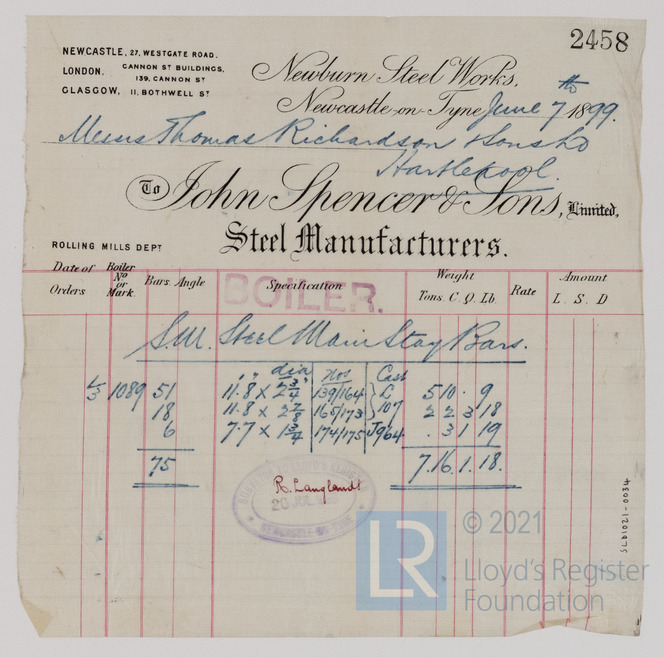 2458
NEWCASTLE, 27, WESTGATE ROAD.
LONDON, CANNON ST BUILDINGS, 139, CANNON ST
GLASGOW, 11, BOTHWELL ST
Newburn Steel Works,
Newcastle-on-Tyne June 7th 1899.
Messrs Thomas Richardson & Sons Ld
Hartlepool.
To John Spencer & Sons, Limited,
Steel Manufacturers.
ROLLING MILLS DEPT
Date of Orders Boiler No or Mark. Bars. Angle Specification Weight Tons. C. Q. Lb. Rate Amount L. S. D
BOILER.
S.M. Steel Main Stay Bars.
dia Nos Cast
1/3 1089 51 11.8 x 2 3/4 139/164 L 5 10 . 9
18 11.8 x 2 7/8 165/173 107 2 2 3 18
6 7.7 x 1 3/4 174/175 J964 . 3 1 19
75 7.16.1.18.
R. Langlands
20 JUL
NEWCASTLE-ON-TYNE
SLD1021-0034
LR © 2021
Lloyd's Register
Foundation